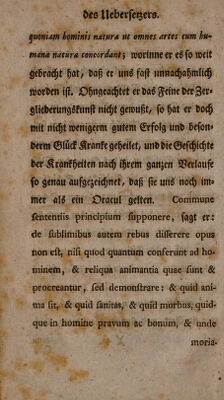 des Uebersetzers.
quoniam hominis natura ut omnes artes cum hu-
mana natura concordant; worinne er es so weit
gebracht hat, daß er uns fast unnachahmlich
worden ist. Ohngeachtet er das Feine der Zer-
gliederungskunst nicht gewußt, so hat er doch
mit nicht wenigerm gutem Erfolg und beson-
derm Glück Kranke geheilet, und die Geschichte
der Krankheiten nach ihrem ganzen Verlaufe
so genau aufgezeichnet, daß sie uns noch im-
mer als ein Oracul gelten. Commune
sententiis principium supponere, sagt er:
de sublimibus autem rebus disserere opus
non est, nisi quod quantum conferunt ad ho-
minem, & reliqua animantia quae sunt &
procreantur, sed demonstrare: & quid ani-
ma sit, & quid sanitas, & quid morbus, quid-
que in homine pravum ac bonum, & unde
moria-